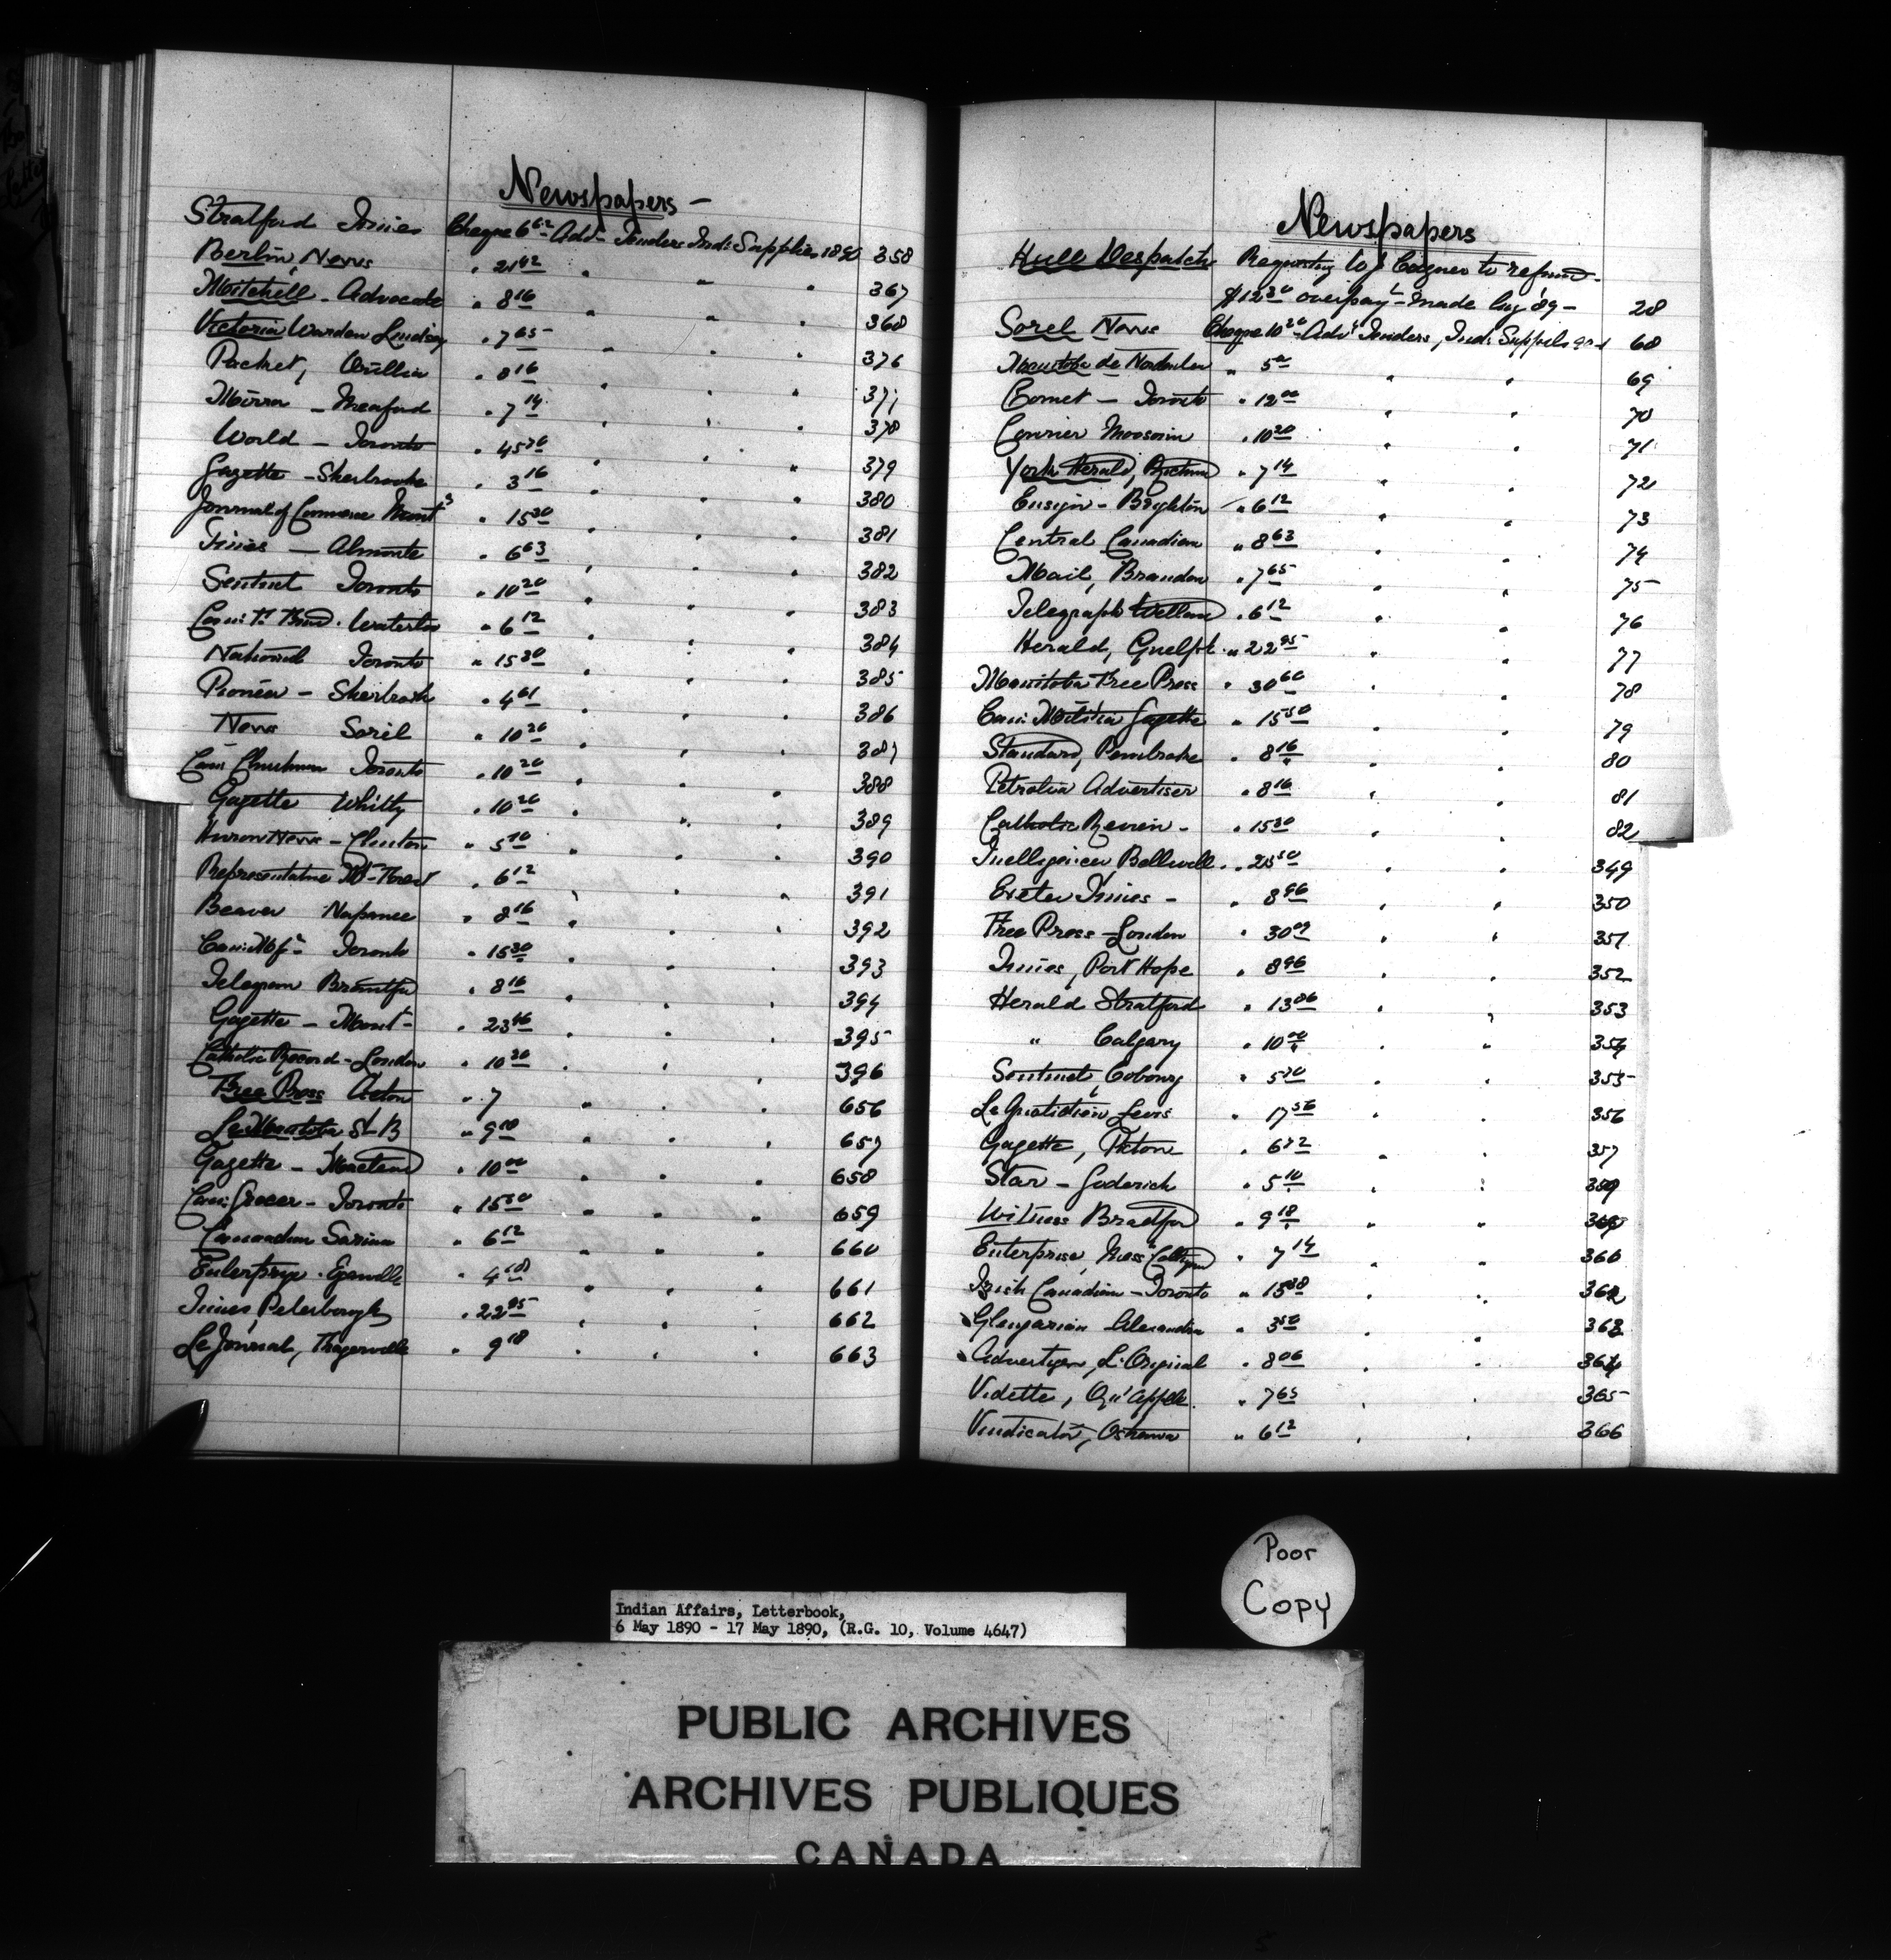 Newspapers -
Stratford Times Cheque 6 12 Adv- Tenders Ind: Supplies 1890 358
Berlin News " 21 42 " " " 367
Mitchell - Advocate " 8 16 " " " 368
Victoria Warden Lindsay " 7 65 " " " 376
Packet, Orillia " 8 16 " " " 377
Mirror - Meaford " 7 14 " " " 378
World - Toronto " 45 " " " 379
Gazette - Sherbrooke " 3 16 " " " 380
Journal of Commerce Mont " 15 30 " " " 381
Times - Almonte " 6 63 " " " 382
Sentinel Toronto " 10 20 " " " 383
Waterloo " 6 12 " " " 384
National Toronto " 15 30 " " " 385
Pioneer - Sherbrook " 4 61 " " " 386
News Sorel " 10 20 " " " 387
Can: Churchman Toronto " 10 20 " " " 388
Gazette Whitby " 10 20 " " " 389
Huron News - Clinton " 5 10 " " " 390
Representative Mt- Forest " 6 12 " " " 391
Beaver Napanee " 8 16 " " " 392
Can: Mfr- Toronto " 15 30 " " " 393
Telegram Brantfd " 8 16 " " " 394
Gazette - Mont- " 23 46 " " " 395
Catholic Record - London " 10 20 " " " 396
Free Press Acton " 7 " " " 656
Le Manitoba St B " 9 18 " " " 657
Gazette - Macleod " 10 00 " " " 658
Can: Grocer - Toronto " 15 30 " " " 659
Canadian Sarnia " 6 12 " " " 660
Enterprise - Eganville " 4 08 " " " 661
Times, Peterborough " 22 95 " " " 662
Le Journal, " 9 18 " " " 663
Newspapers
Hull Despatch Requesting to refund
$12 30 overpayt- made Aug '89 - 28
Sorel News Cheque 10 20 Advt Tenders, Ind: Supplies 68
Manitoba de " 5 " " 69
Comet - Toronto " 12 00 " " 70
Courier Moosomin " 10 20 " " 71
York Herald, Richmond " 7 14 " " 72
Ensign - Brighton " 6 12 " " 73
Central Canadian " 8 63 " " 74
Mail, Brandon " 7 65 " " 75
Telegraph Welland " 6 12 " " 76
Herald, Guelph " 22 95 " " 77
Manitoba Free Press " 30 60 " " 78
Can: Militia Gazette " 15 30 " " 79
Standard, Pembroke " 8 16 " " 80
Petrolia Advertiser " 8 16 " " 81
Catholic Review - " 15 30 " " 82
Intelligencer Belleville " 25 50 " " 349
Exeter Times - " 8 96 " " 350
Free Press - London " 30 09 " " 351
Times, Port Hope " 8 96 " " 352
Herald Stratford " 13 06 " " 353
" Calgary " 10 00 " " 354
Sentinel, Cobourg " 5 " " 355
Le Quotidien Levis " 17 56 " " 356
Gazette, Picton " 6 " " 357
Star - Goderich " 5 10 " " 359
Witness Bradford " 9 18 " "
Enterprise, Mess Collingwd " 7 14 " " 360
Irish Canadian - Toronto " 15 30 " " 362
Glengarian Alexandria " 3 50 " " 363
Advertiser, L'Orignal " 8 06 " " 364
Vidette, Qu'Appelle " 7 65 " " 365
Vindicator, Oshawa " 6 12 " " 366
Poor
Copy
Indian Affairs, Letterbook,
6 May 1890 - 17 May 1890, (R.G. 10, Volume 4647)
PUBLIC ARCHIVES
ARCHIVES PUBLIQUES
CANADA